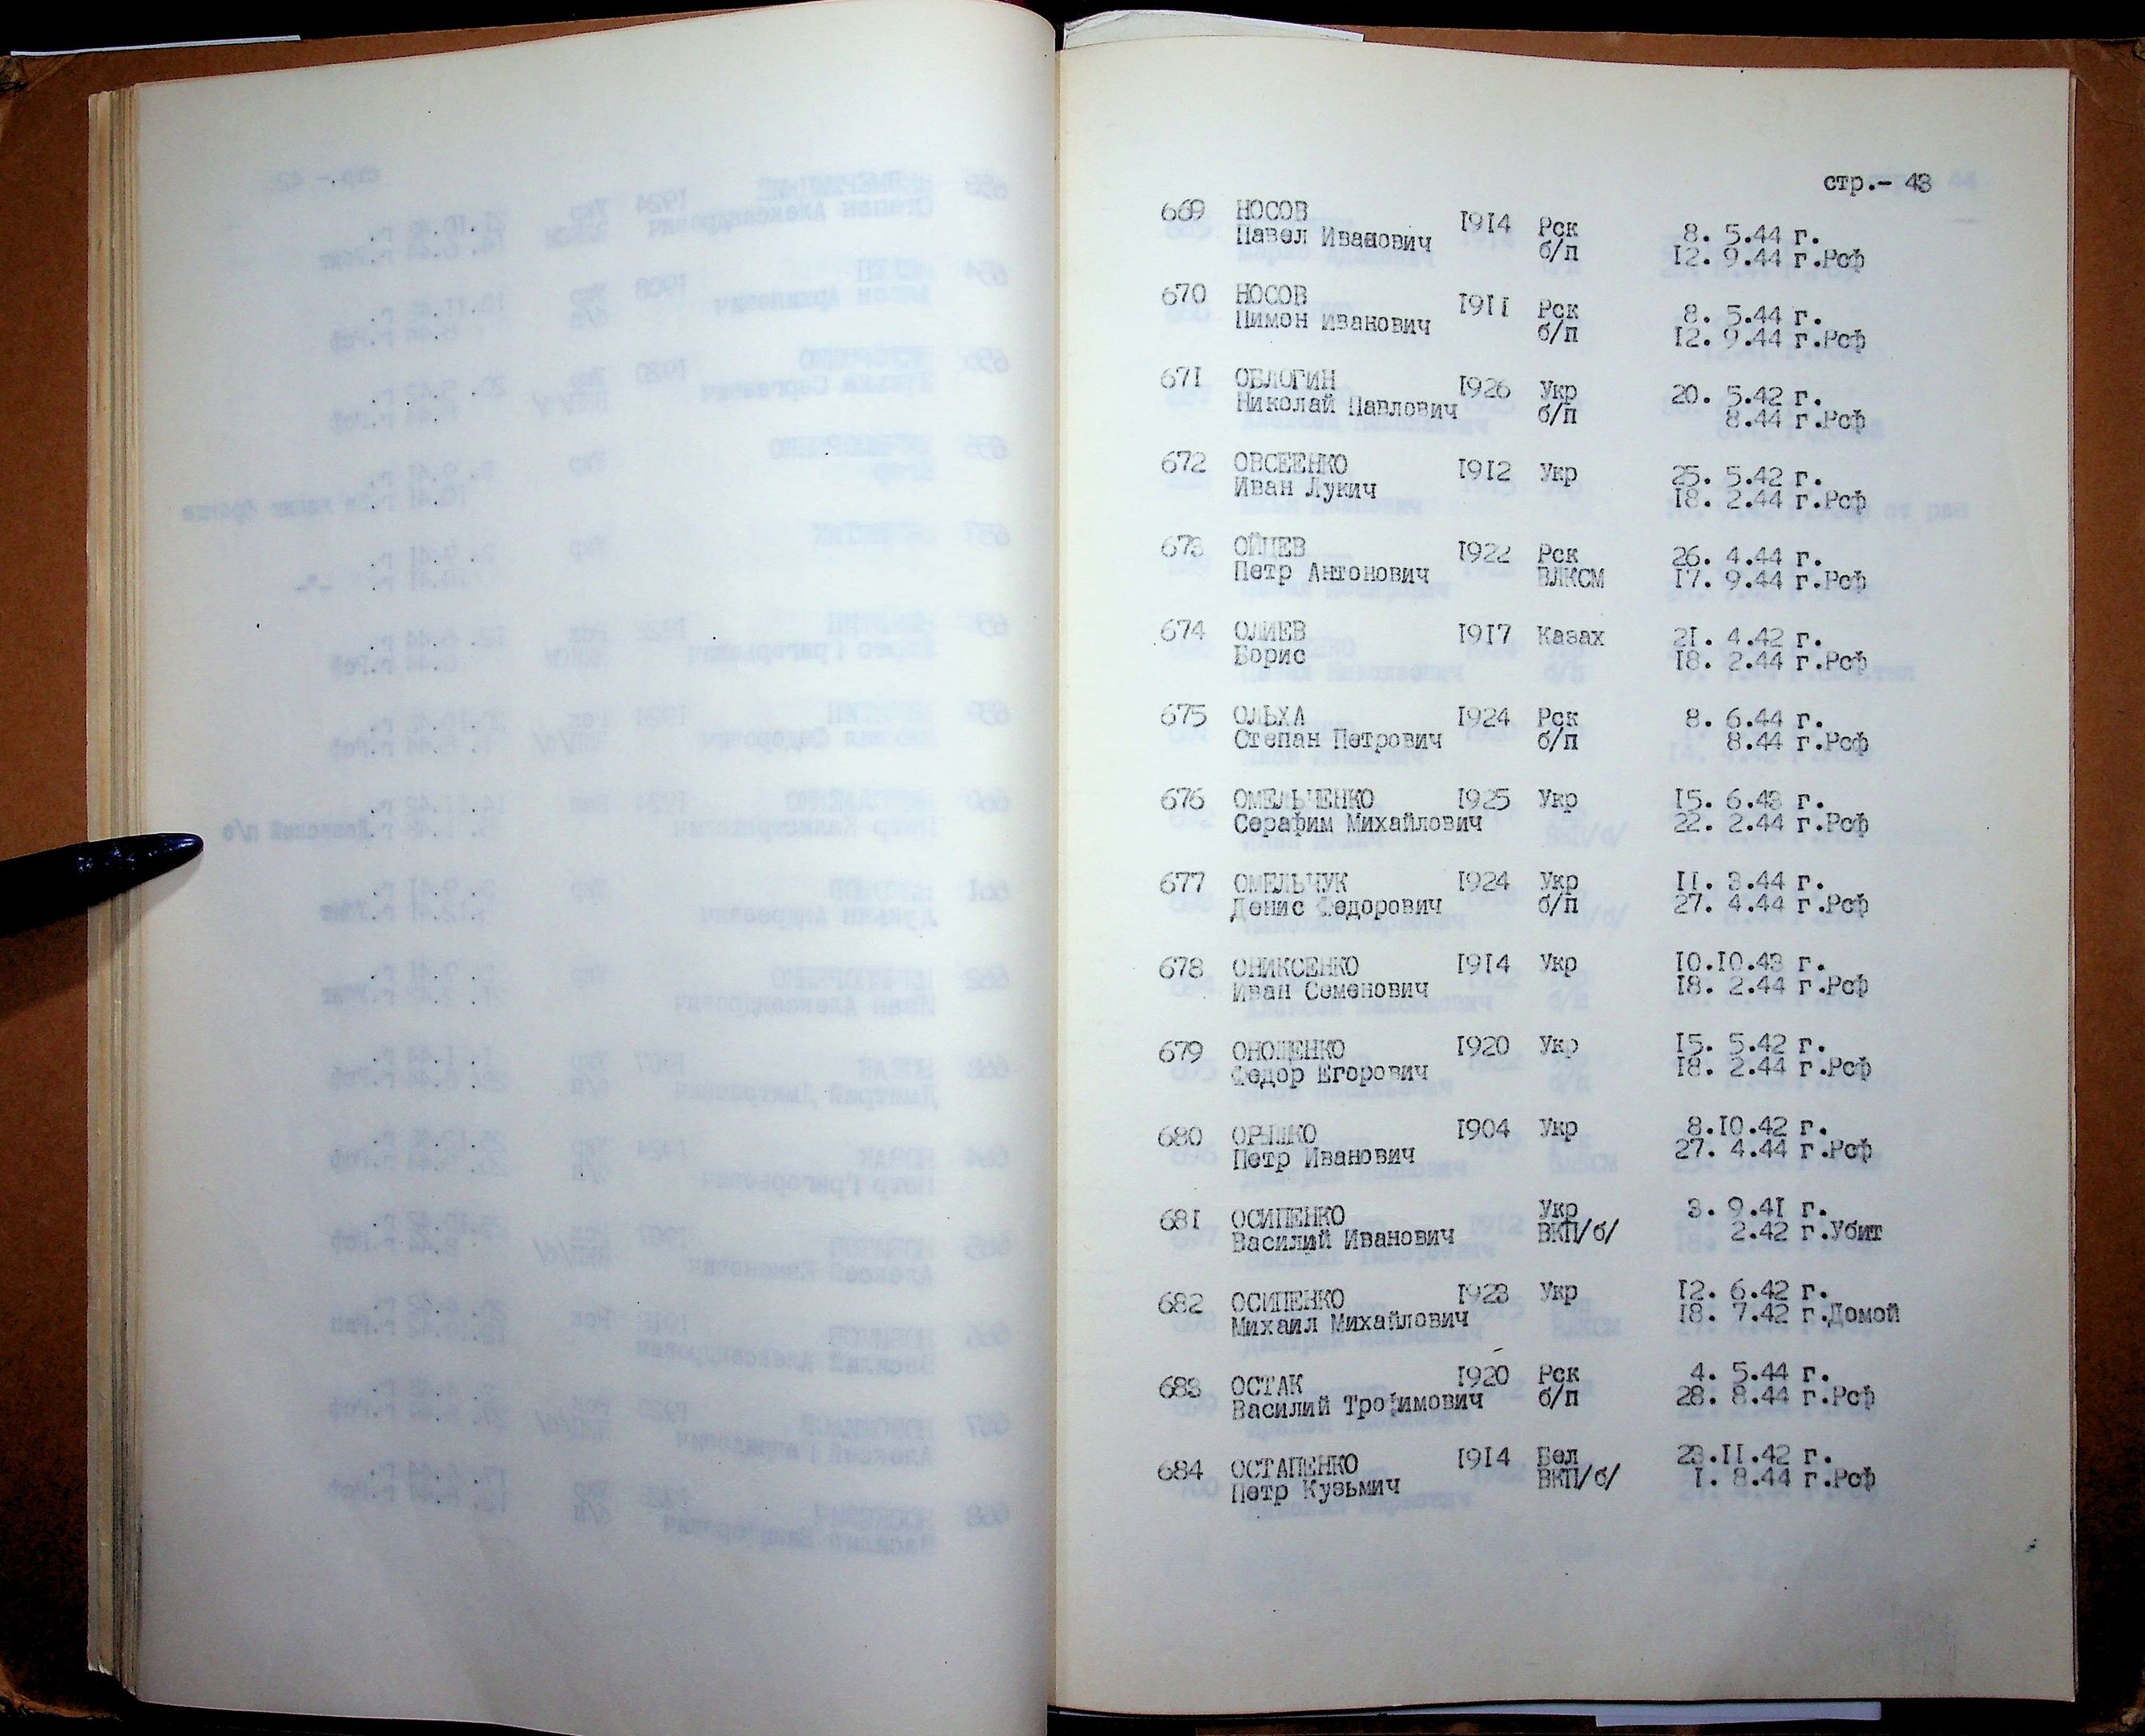 стр.- 43
669 НОСОВ 1914 Рск 8. 5.44 г.
Павел Иванович б/п 12. 9.44 г.Рсф
670 НОСОВ 1911 Рск 8. 5.44 г.
Пимон Иванович б/п 12. 9.44 г.Рсф
671 ОБЛОГИН 1926 Укр 20. 5.42 г.
Николай Павлович б/п 8.44 г.Рсф
672 ОВСЕЕНКО 1912 Укр 25. 5.42 г.
Иван Лукич 18. 2.44 г.Рсф
673 1922 Рск 26. 4.44 г.
Петр Антонович ВЛКСМ 17. 9.44 г.Рсф
674 ОЛИЕВ 1917 Казах 21. 4.42 г.
Борис 18. 2.44 г.Рсф
675 ОЛЬХА 1924 Рск 8. 6.44 г.
Степан Петрович б/п 8.44 г.Рсф
676 ОМЕЛЬЧЕНКО 1925 Укр 15. 6.43 г.
Серафим Михайлович 22. 2.44 г.Рсф
677 ОМЕЛЬЧУК 1924 Укр 11. 3.44 г.
Денис Федорович б/п 27. 4.44 г.Рсф
678 ОНИКСЕНКО 1914 Укр 10.10.43 г.
Иван Семенович 18. 2.44 г.Рсф
679 1920 Укр 15. 5.42 г.
Федор Егорович 18. 2.44 г.Рсф
680 1904 Укр 8.10.42 г.
Петр Иванович 27. 4.44 г.Рсф
681 ОСИПЕНКО Укр 3. 9.41 г.
Василий Иванович ВКП/б/ 2.42 г.Убит
682 ОСИПЕНКО 1923 Укр 12. 6.42 г.
Михаил Михайлович 18. 7.42 г.Домой
683 ОСТАК 1920 Рск 4. 5.44 г.
Василий Трофимович б/п 28. 8.44 г.Рсф
684 ОСТАПЕНКО 1914 Бел 23.11.42 г.
Петр Кузьмич ВКП/б/ 1. 8.44 г.Рсф